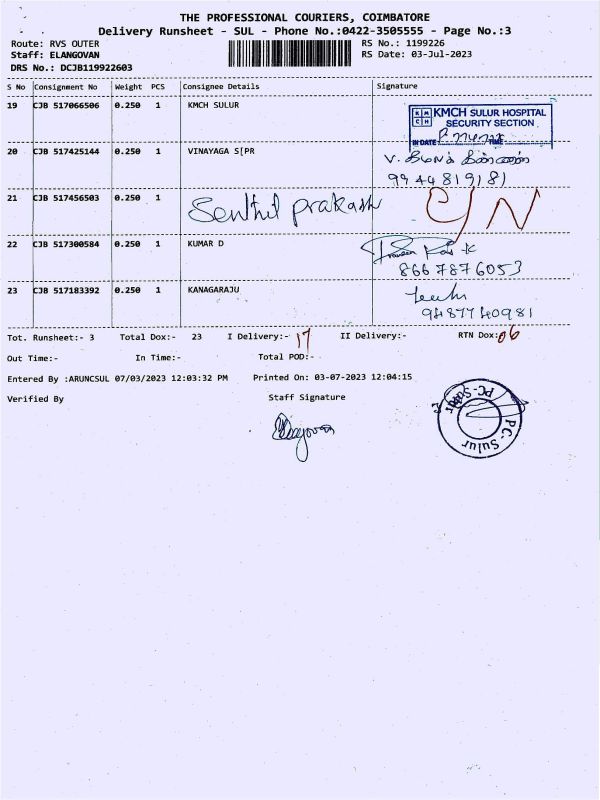 THE PROFESSIONAL COURIERS, COIMBATORE
Delivery Runsheet - SUL - Phone No.:0422-3505555 - Page No.:3
Route: RVS OUTER RS No.: 1199226
Staff: ELANGOVAN RS Date: 03-Jul-2023
DRS No.: DCJB119922603
S No Consignment No Weight PCS Consignee Details Signature
19 CJB 517066506 0.250 1 KMCH SULUR
KM CH KMCH SULUR HOSPITAL
SECURITY SECTION
IN DATE TIME
20 CJB 517425144 0.250 1 VINAYAGA S[PR
9944819181
21 CJB 517456503 0.250 1 Senthil prakash C/N
22 CJB 517300584 0.250 1 KUMAR D
8667876053
23 CJB 517183392 0.250 1 KANAGARAJU
9487740981
Tot. Runsheet:- 3 Total Dox:- 23 I Delivery:- 17 II Delivery:- RTN Dox:- 06
Out Time:- In Time:- Total POD:-
Entered By :ARUNCSUL 07/03/2023 12:03:32 PM Printed On: 03-07-2023 12:04:15
Verified By Staff Signature
PC-Sulur